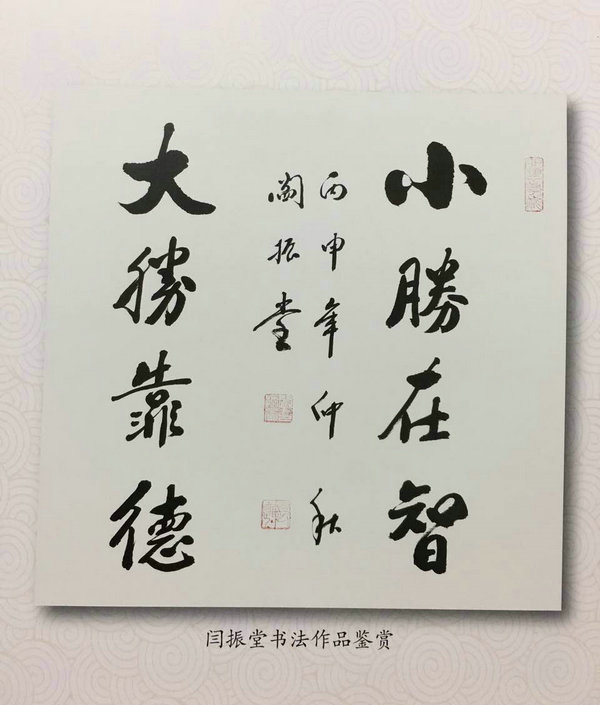 小勝在智
丙申年仲秋
閻振堂
大勝靠德
闫振堂书法作品鉴赏